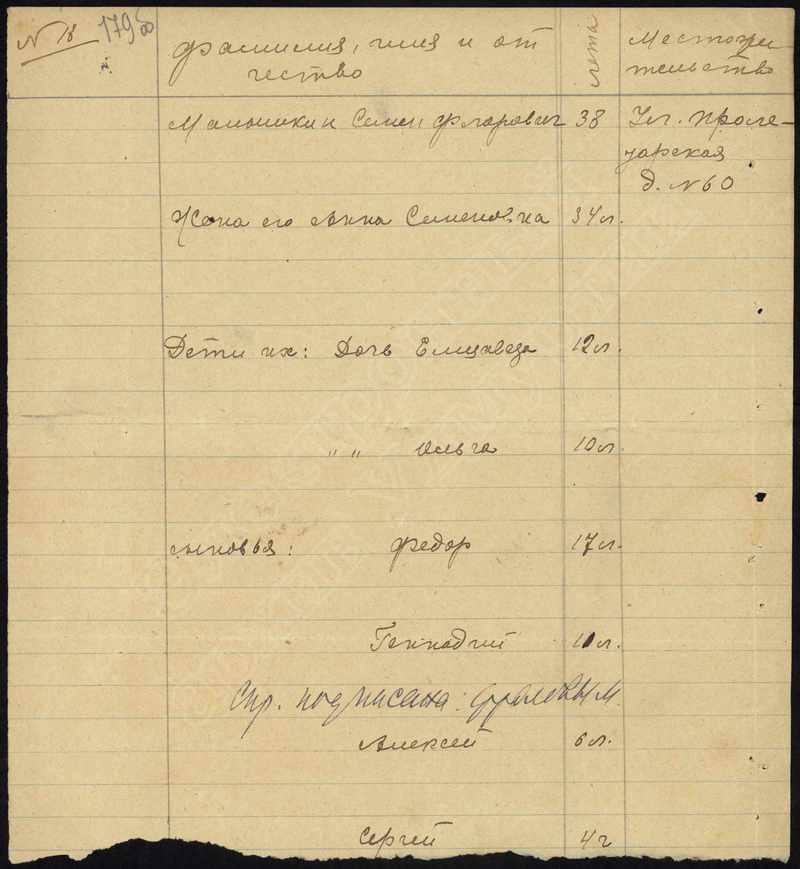 N 18
179 об
фамилия, имя и от
чество
лета
Местожи
тельство
Семен Фларович 38 Ул. Проле-
тарская
д. N 60
Жена его Анна Семеновна 34 л.
Дети их: Дочь Елизавета 12 л.
" " Ольга 10 л.
сыновья: Федор 17 л.
Геннадий 11 л.
Спр. подписана: Фроловым.
Алексей 6 л.
Сергей 4 г